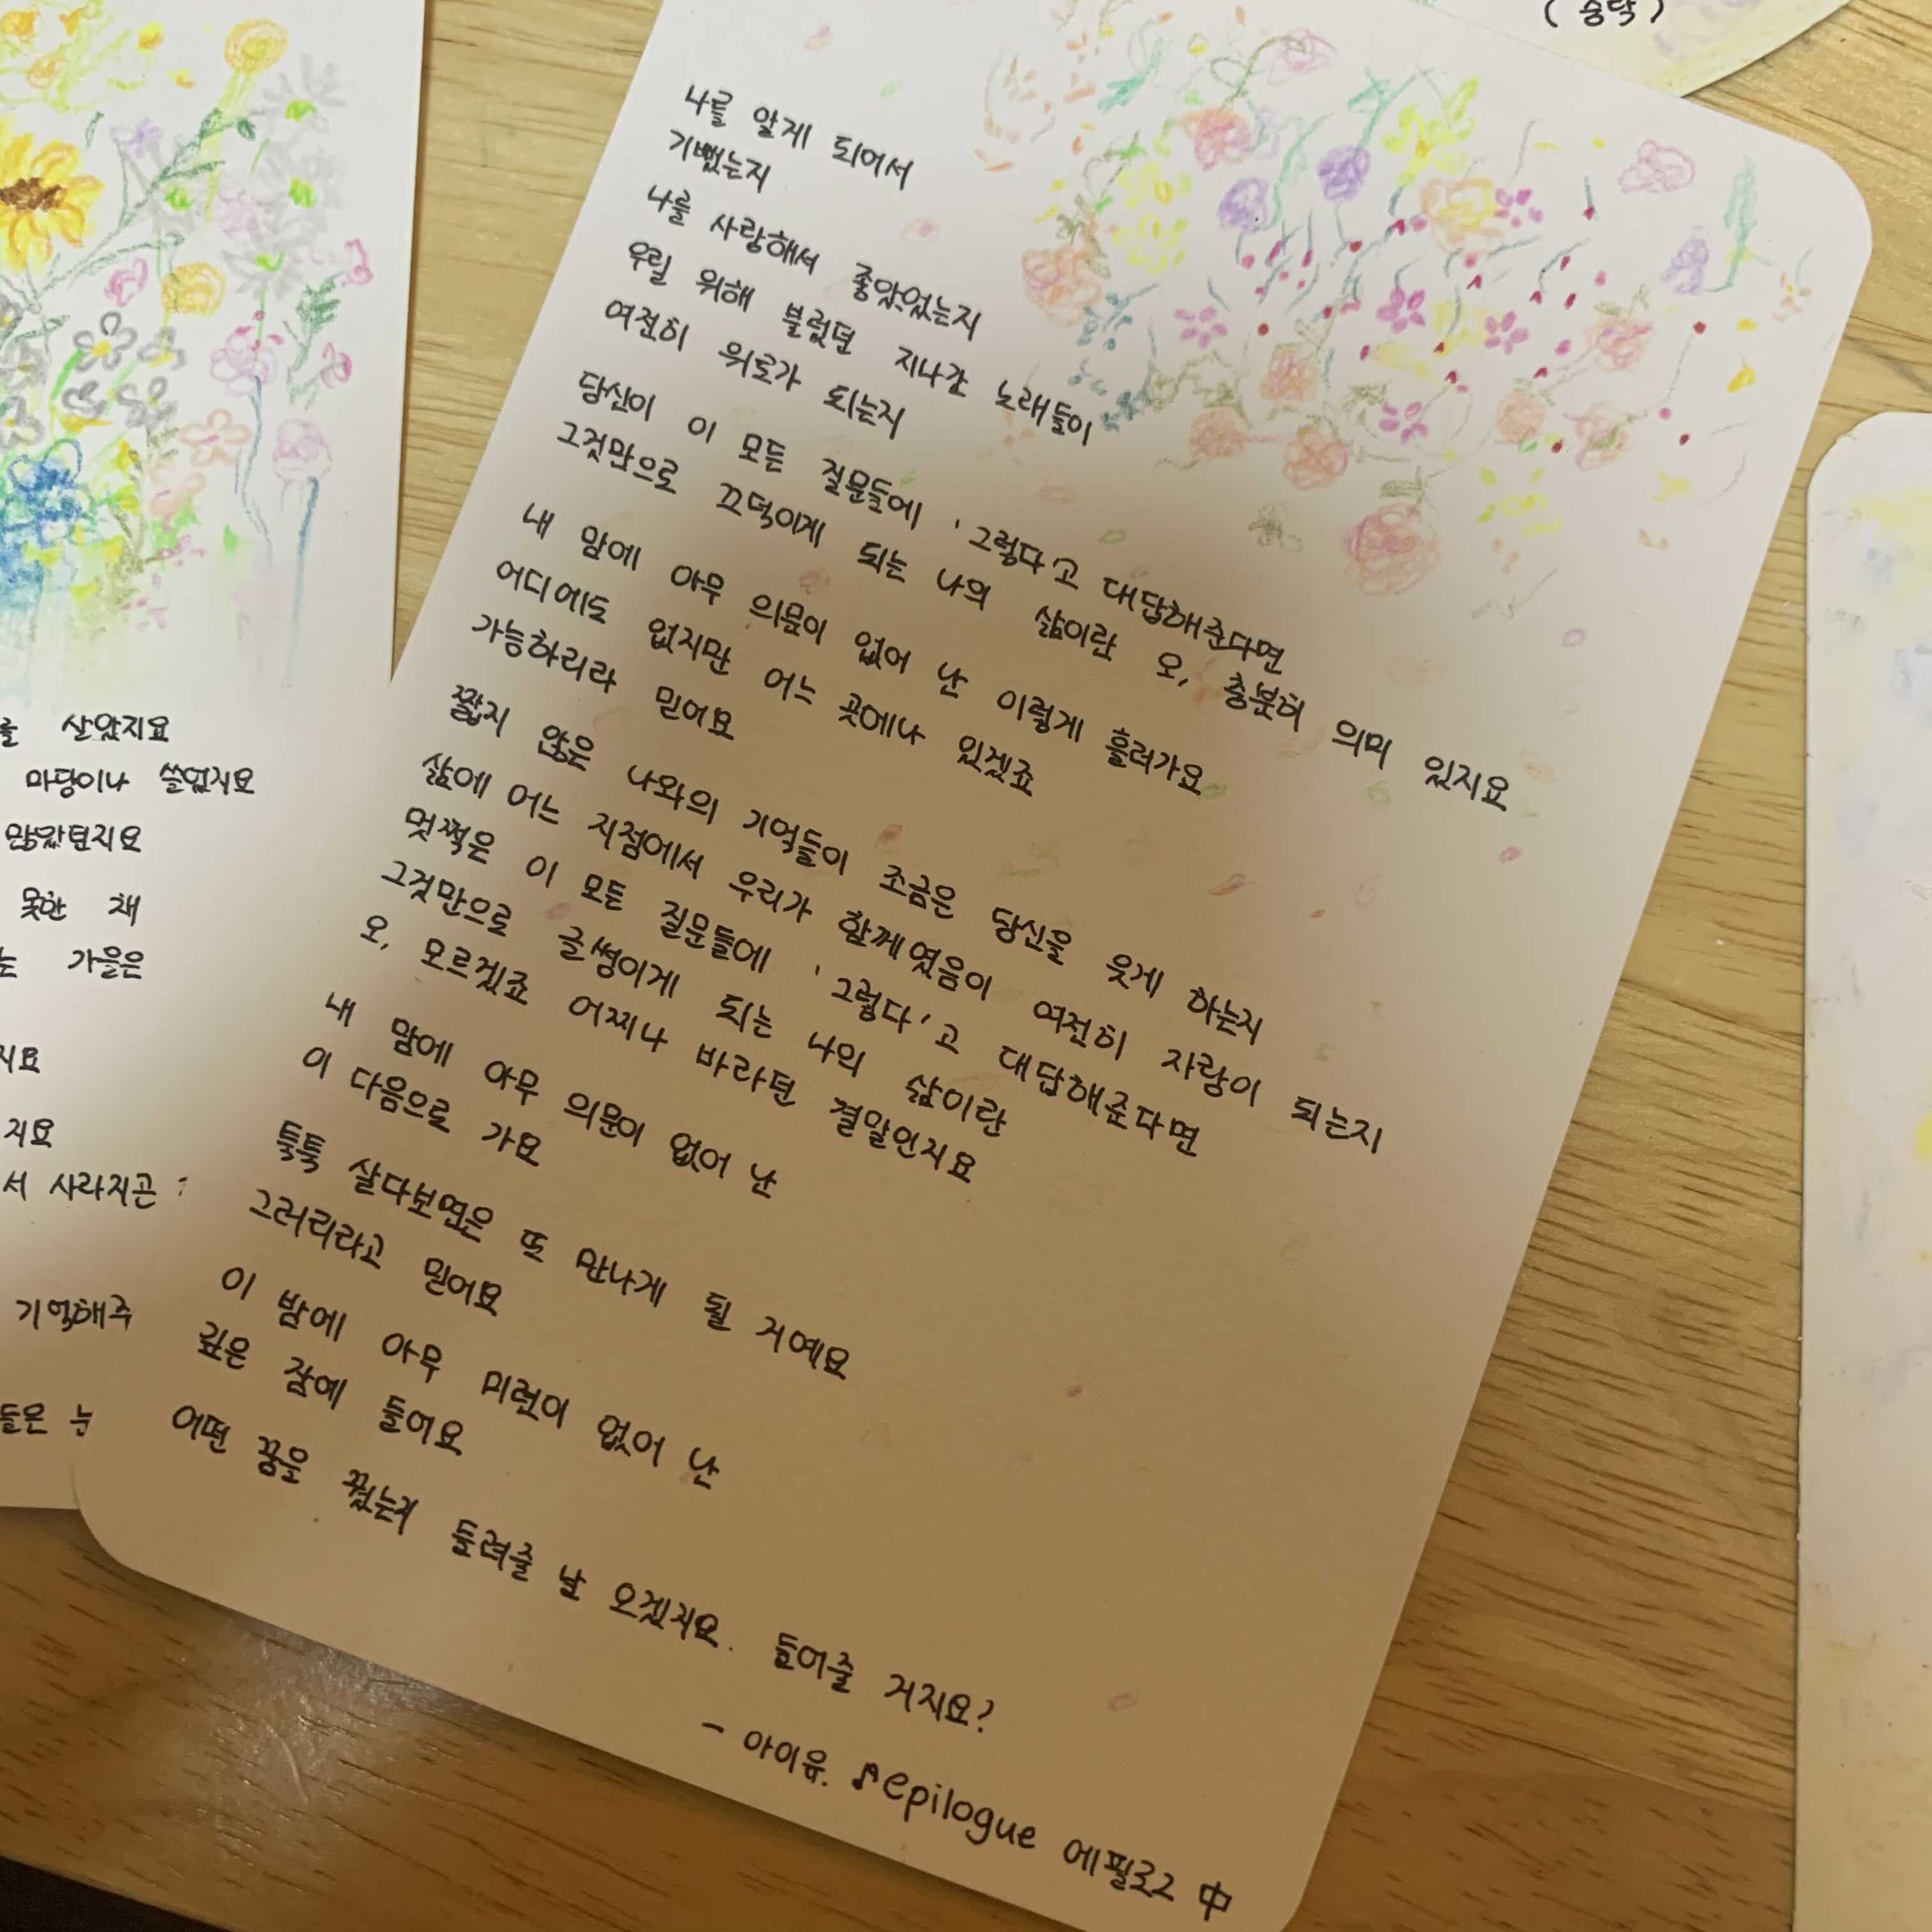 나를 알게 되어서
기뻤는지
나를 사랑해서 좋았었는지
우릴 위해 불렀던 지나간 노래들이
여전히 위로가 되는지
당신이 이 모든 질문들에 '그렇다'고 대답해준다면
그것만으로 끄덕이게 되는 나의 삶이란 오, 충분히 의미 있지요
내 맘에 아무 의문이 없어 난 이렇게 흘러가요
어디에도 없지만 어느 곳에나 있겠죠
가능하리라 믿어요
짧지 않은 나와의 기억들이 조금은 당신을 웃게 하는지
삶에 어느 지점에서 우리가 함께였음이 여전히 자랑이 되는지
멋쩍은 이 모든 질문들에 '그렇다'고 대답해준다면
그것만으로 글썽이게 되는 나의 삶이란
오, 모르겠죠 어찌나 바라던 결말인지요
내 맘에 아무 의문이 없어 난
이 다음으로 가요
툭툭 살다보면은 또 만나게 될 거예요
그러리라고 믿어요
이 밤에 아무 미련이 없어 난
깊은 잠에 들어요
어떤 꿈을 꿨는지 들려줄 날 오겠지요. 들어줄 거지요?
- 아이유. ♪epilogue 에필로그 中
를 살았지요
마당이나 쓸었지요
많았던지요
못한 채
는 가을은
지요
지요
서 사라지곤
기억해주
들은